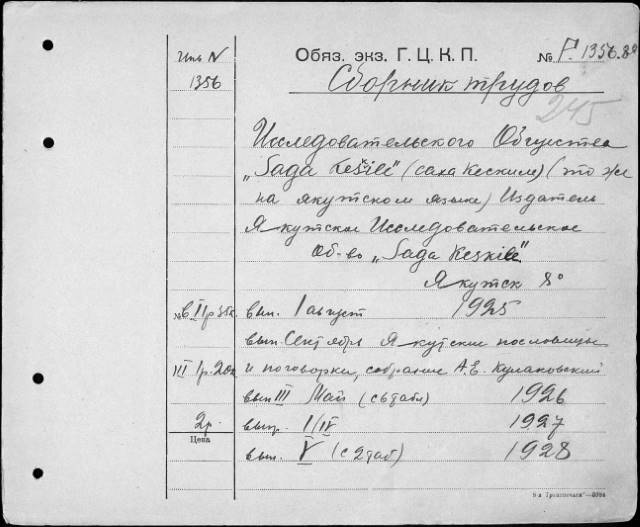 Инв N
1356
Обяз. экз. Г. Ц. К. П.
№ Р. 1356.8°
Сборник трудов
245
Исследовательского Общества
„Saqa Keskile" (саха кескиле) (то же
на якутском языке) Издатель
Якутское Исследовательское
Об-во „Saqa Keskile"
Якутск 8°
вып. I август 1925
вып. Сентябрь Якутские пословицы
и поговорки, собрание А.Е. Кулаковский
вып III Май (с 6 табл) 1926
2р.
Цена
вып. I/IV 1927
вып. V (с 2 таб) 1928